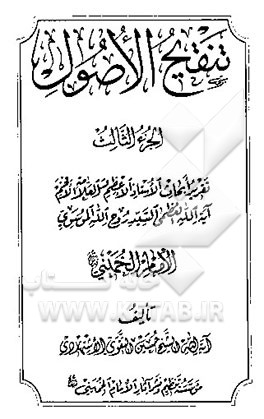 تنقيح الأصول
الجزء الثالث
تقرير أبحاث الأستاذ الأعظم والعلامة الأفخم
آية الله العظمى السيد روح الله الموسوي
الإمام الخميني
تأليف
آية الله الشيخ حسين التقوي الاشتهاردي
مؤسسة تنظيم ونشر آثار الإمام الخميني
خانه کتاب
WWW.KETAB.IR